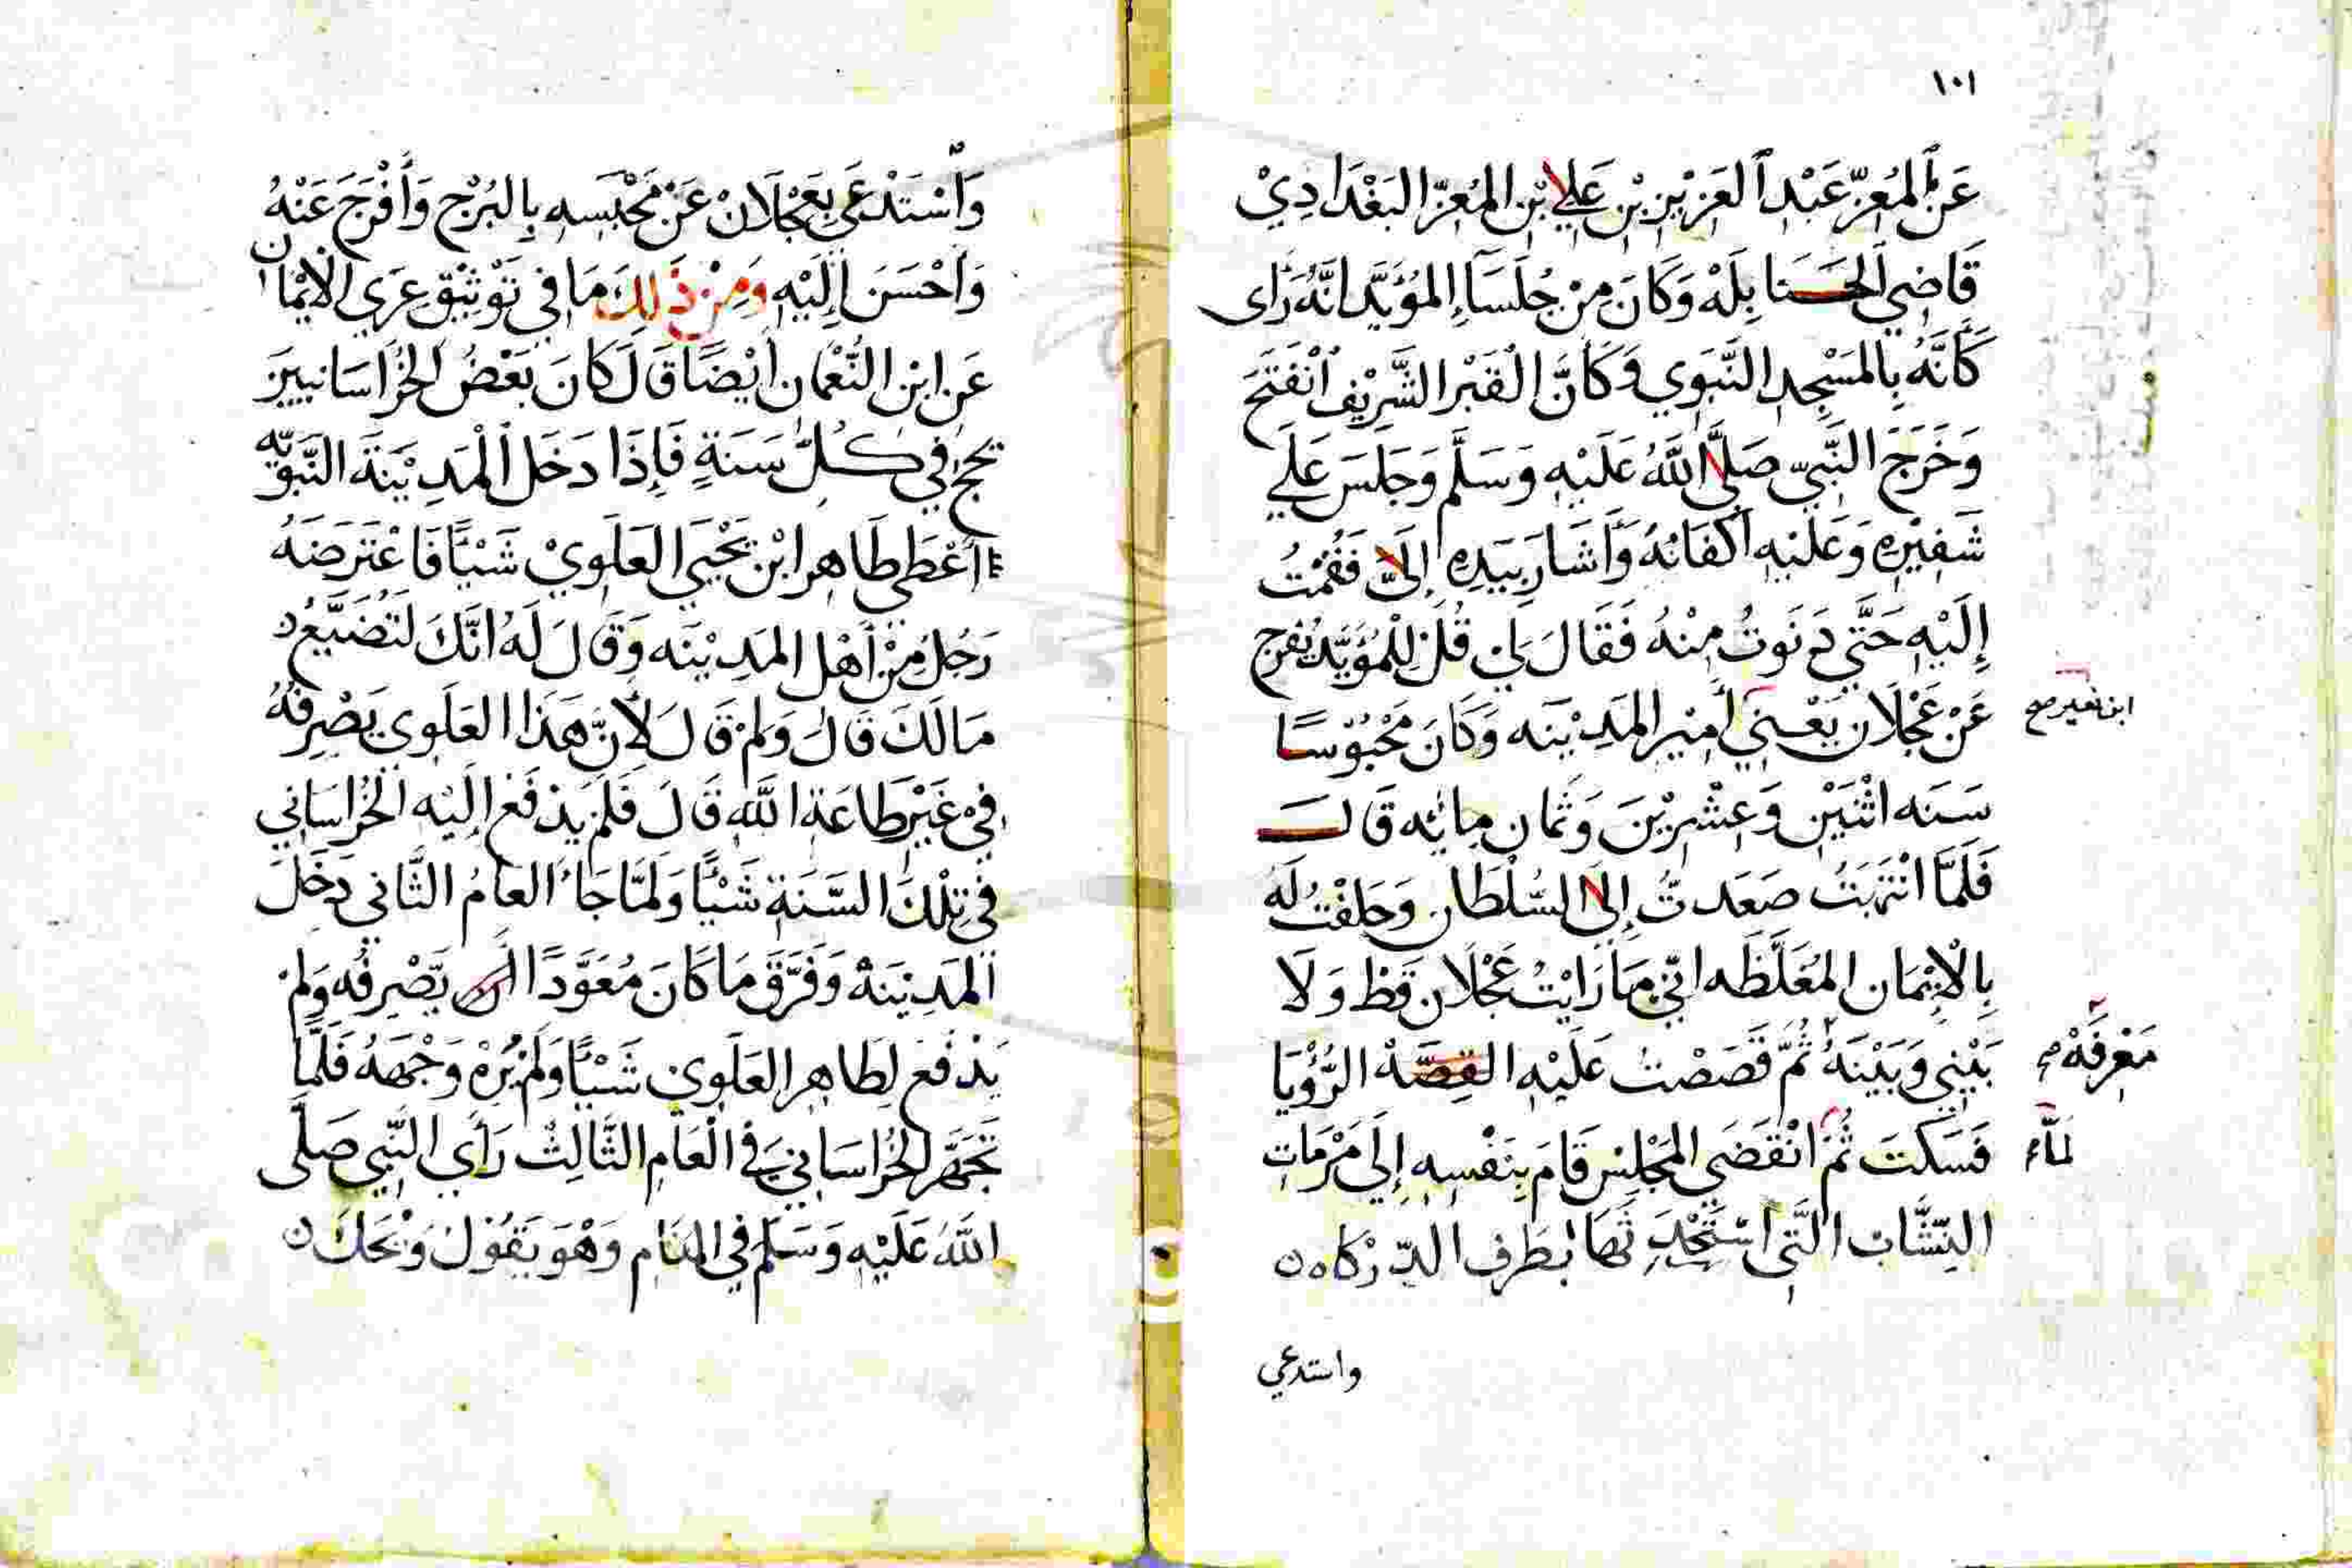 ١٠١
عَنْ المُعِزّ عَبْدِ العَزِيْزِ بْنِ عَلِي ابْنِ المُعِزّ البَغْدَادِيْ
قَاضِي الحَنَابِلَهْ وَكَانَ مِنْ جُلَسَآءِ المُؤَيَّد انَّهُ رَأى
كَأَنَّهُ بِالمَسْجِدِ النَّبَوِي وَكَأَنَّ القَبْرَ الشَّرِيْف انْفَتَحَ
وَخَرَجَ النَّبِيّ صَلَّى اللَّهُ عَلَيْهِ وَسَلَّم وَجَلَسَ عَلَي
شَفِيْرِهِ وَعَلَيْهِ أكْفَانُهُ وَأَشَارَ بِيَدِهِ إِلَيَّ فَقُمْتُ
إِلَيْهِ حَتَّي دَنَوتُ مِنْهُ فَقَالَ لِي قُلْ لِلْمُؤَيَّدِ يُفرج
عَنْ عَجْلَان يَعْنِي أَمِيْر المَدِيْنَه وَكَانَ مَحْبُوْسًا
ابن نعير صح
سَنَه اثْنَيْنِ وَعِشْرِيْنَ وَثَمَان مِائه قَالَ
فَلَمَّا انْتَبَهْتُ صَعَدتُّ إِلَى السُّلْطَان وَحَلَفْتُ لَهُ
بِالْاَيْمَان المُغَلَّظَه انّي مَا رَايْتُ عَجْلَان قَطْ وَلَا
بَيْنِي وَبَيْنَهُ ثُمَّ قَصَصْتُ عَلَيْهِ القِصَّهْ الرُّؤْيَا
مَعْرِفَهْ صح
فَسَكَتَ ثُمَّ انْقَضَي المَجْلِسْ قَامَ بِنَفْسِهِ إِلَي مَرْمَاتِ
لمَّا
النِّشَّاب الَّتِي اسْتَجْدَثَهَا بِطَرَفِ الدِّرْكَاه
واستدعي
وَاسْتَدْعَي بِعَجْلَانْ عَنْ مَحْبَسِهِ بِالبُرْجِ وَأَفْرَجَ عَنْهُ
وَأَحْسَنَ إِلَيْهِ وَمِنْ ذَلِكَ مَا فِي تَوْثِيْقِ عَرَي الْاِيْمَان
عَنِ ابْنِ النُّعْمَانِ أيْضًا قَالَ كَانَ بَعْضُ الخُرَاسَانِيينَ
يحج فِي كُلِّ سَنَةٍ فَإِذَا دَخَلَ الْمَدِيْنَةَ النَّبَوِيَّه
أعْطَي طَاهِرَ ابْن يَحْيَي العَلَوِيْ شَيْئًا فَاعْتَرَضَهُ
رَجُلٌ مِنْ أَهْلِ المَدِيْنَه وَقَالَ لَهُ انَّكَ لَتُضَيِّعُ
مَالَكَ قَالَ وَلِمْ قَالَ لأَنَّ هَذَا العَلَوِي يَصْرِفُهُ
فِيْ غَيْرِ طَاعَةِ اللَّهِ قَالَ فَلَمْ يَدْفَع إِلَيْهِ الخُرَاسَانِي
فِي تِلْكَ السَّنَةِ شَيْئًا وَلَمَّا جَاءَ العَامُ الثَّانِي دَخَلَ
المَدِيْنَهْ وَفَرَّقَ مَا كَانَ مُعَوَّدًا ان يَّصْرِفُه وَلَمْ
يَدْفَع لِطَاهِرِ العَلَوِي شَيْئًا وَلَمْ يُرِهْ وَجْهَهُ فَلَمَّا
تَجَهَّزَ الخُرَاسَانِي فِي الْعَامِ الثَّالِثْ رَأَي النَّبِي صَلَّى
اللَّهُ عَلَيْهِ وَسَلَّم فِي المَنَامِ وَهُوَ يَقُوْلُ وَيْحَكَ